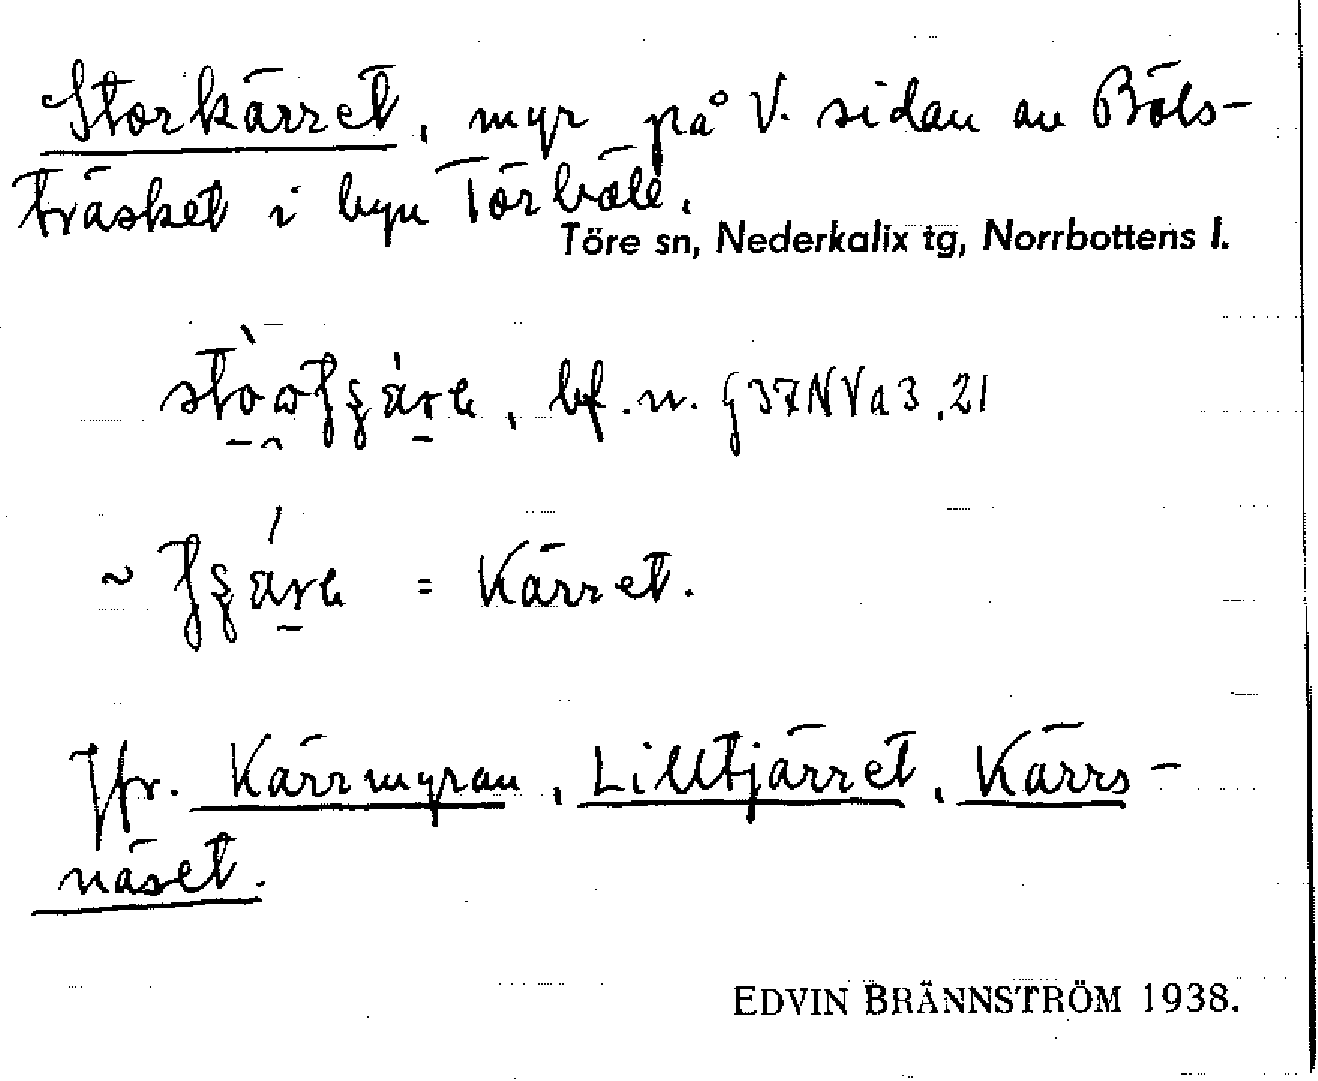 Storkärret, myr på V. sidan av Böls-
träsket i byn Törböle.
Töre sn, Nederkalix tg, Norrbottens l.
bf. n.
~ = Kärret.
Jfr. Kärrmyran, Lilltjärret, Kärrs-
näset.
EDVIN BRÄNNSTRÖM 1938.